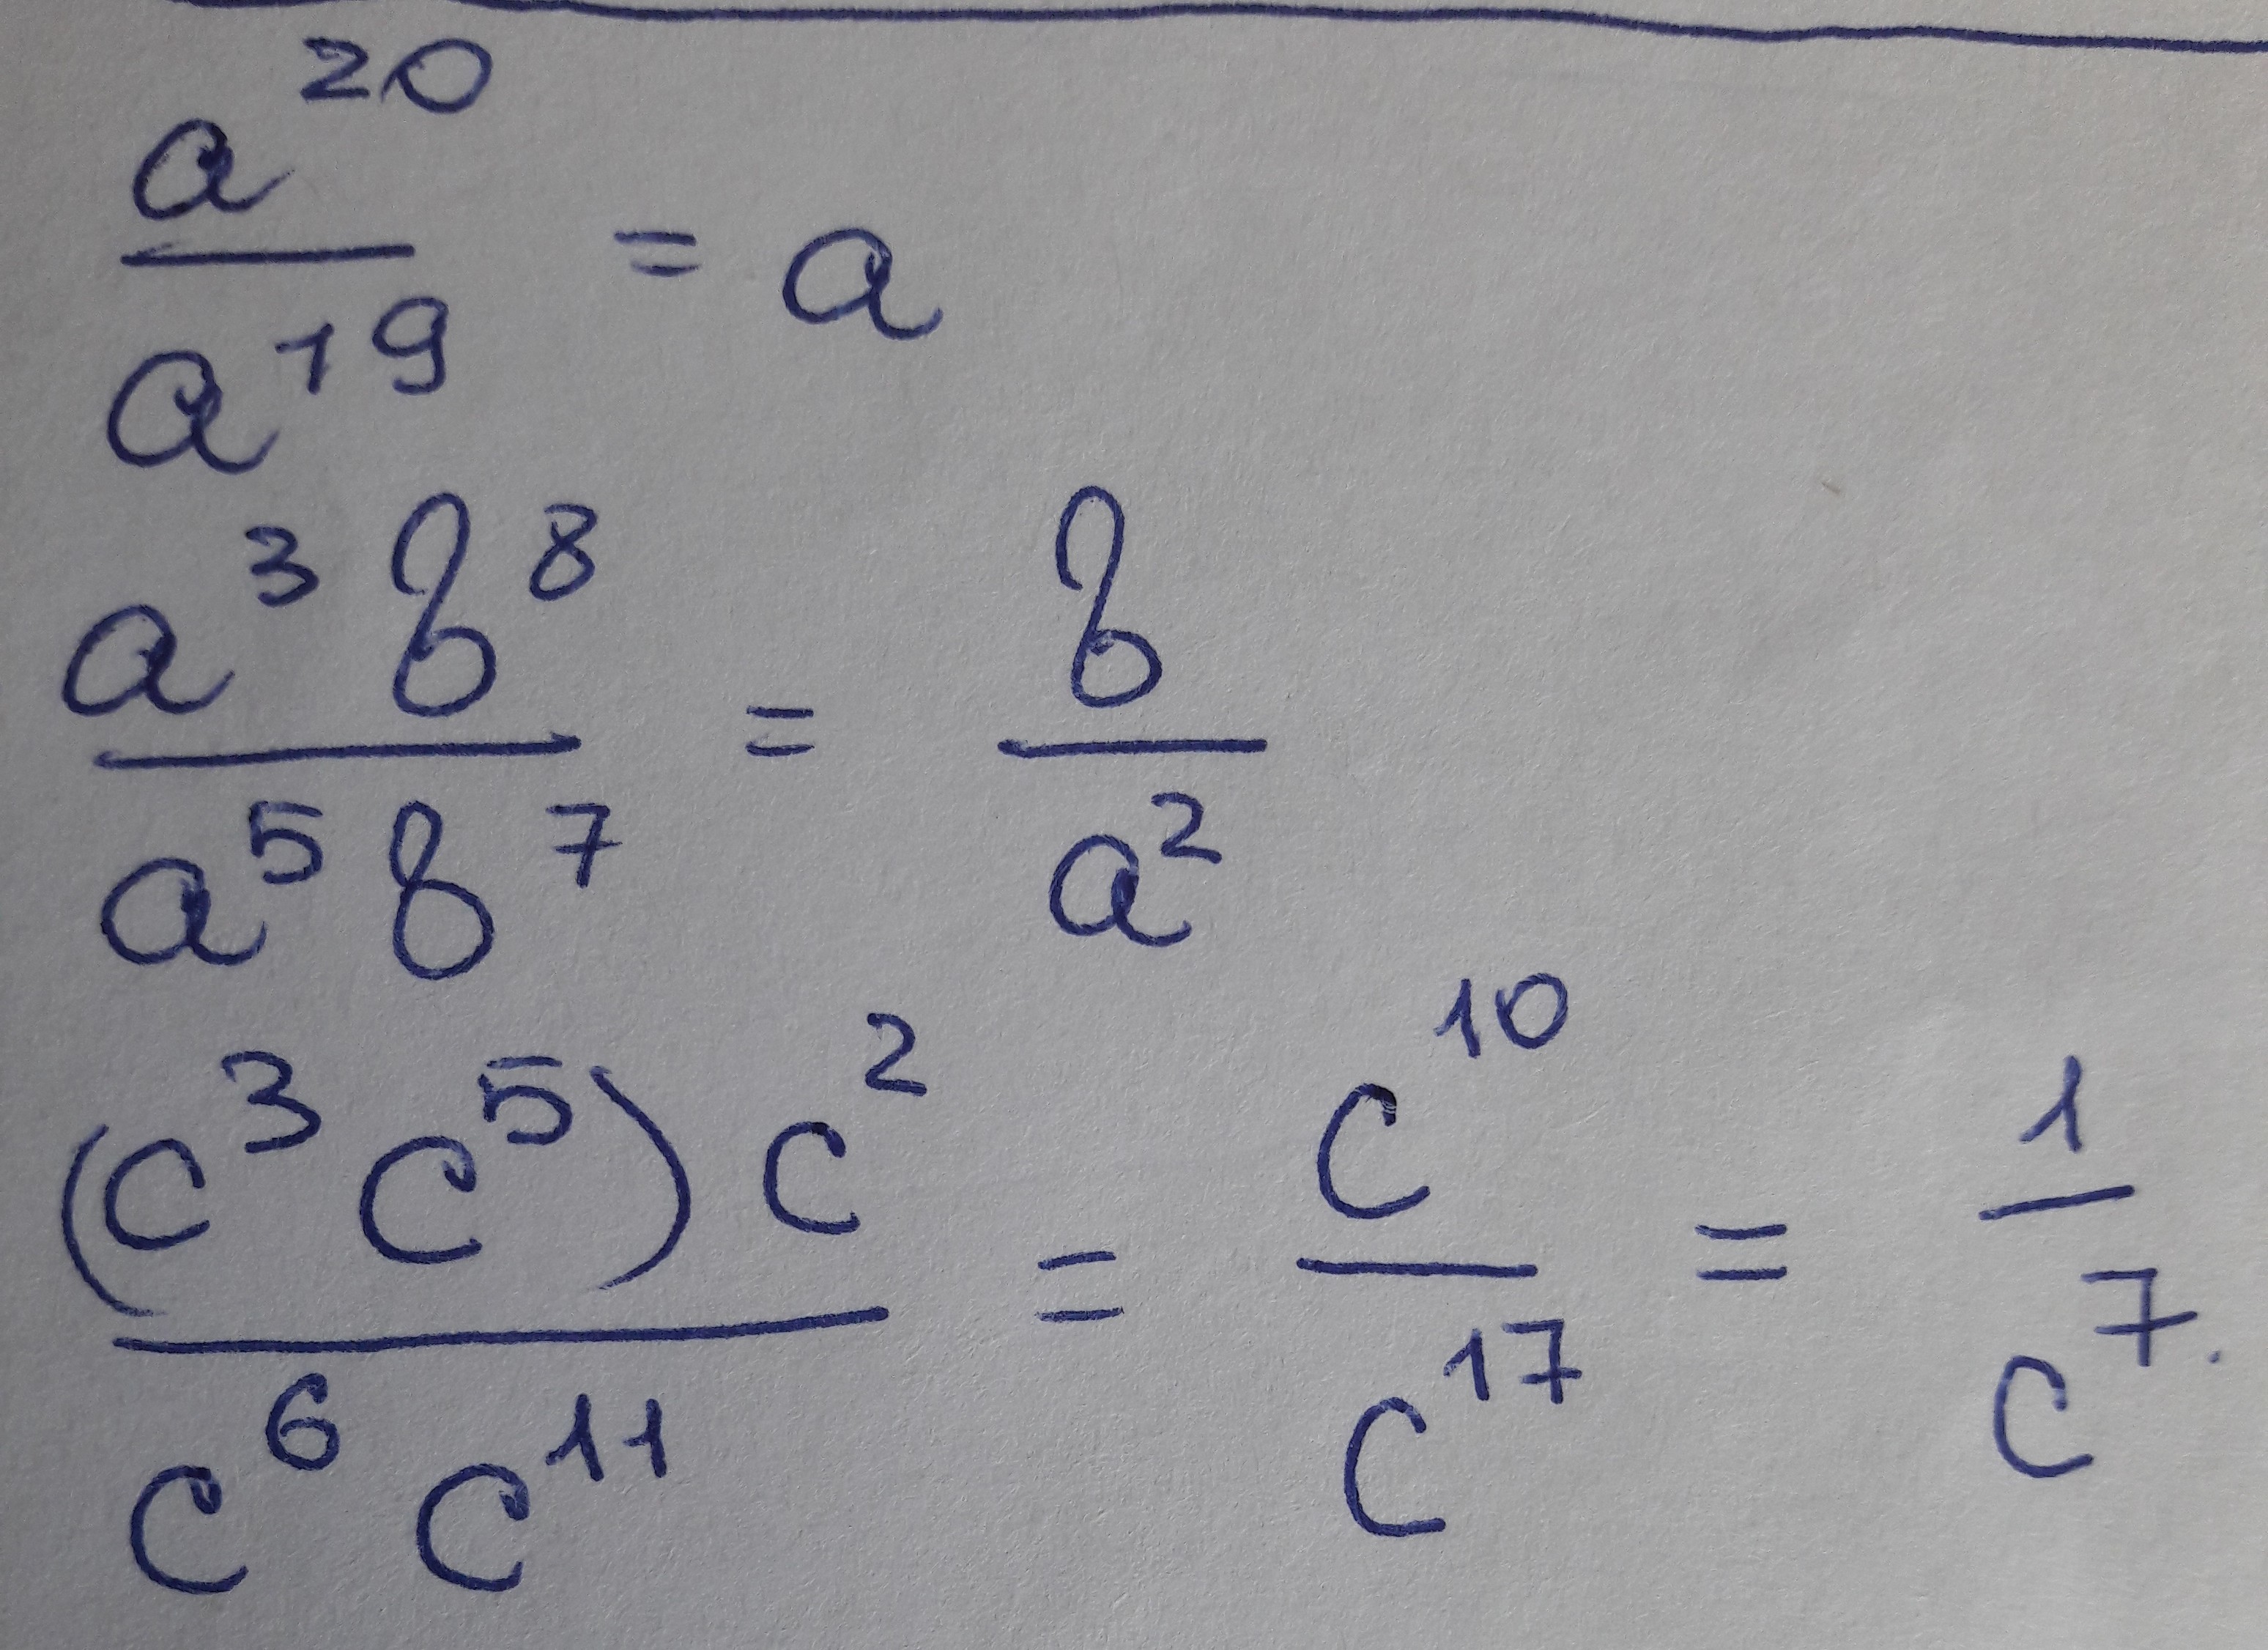 a^20 / a^19 = a
a^3 b^8 / a^5 b^7 = b / a^2
(c^3 c^5) c^2 / c^6 c^11 = c^10 / c^17 = 1 / c^7.